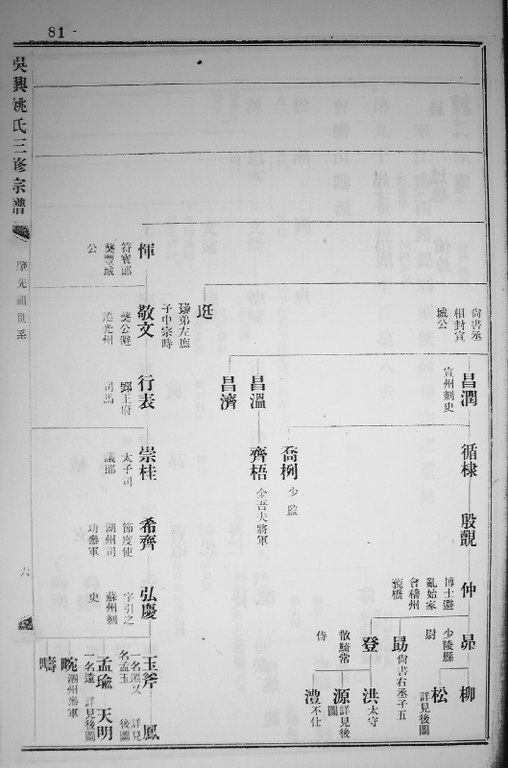 81
吳興姚氏三修宗譜
肇先祖世系
六
尙書丞
相封宣
城公
昌潤
宣州刺史
循棣
殷覬
仲
博士避
亂始家
會稽州
昴
少陵縣
尉
柳
松
詳見後圖
勗
尙書右丞子五
登
散騎常
侍
洪
太守
源
詳見後
圖
澧
不仕
昌溫
昌濟
喬栵
少監
齊梧
金吾大將軍
珽
璹弟左庶
子中宗時
惲
符寶郎
襲豐城
公
敬文
襲公避
行表
鄧王府
司馬
崇桂
太子司
議郎
希齊
節度使
湖州司
功參軍
弘慶
字引之
蘇州刺
史
玉斧
名孟玉
鳳
詳見
後圖
孟瑜
一名遠
天明
詳見後圖
畹
泗州參軍
疇